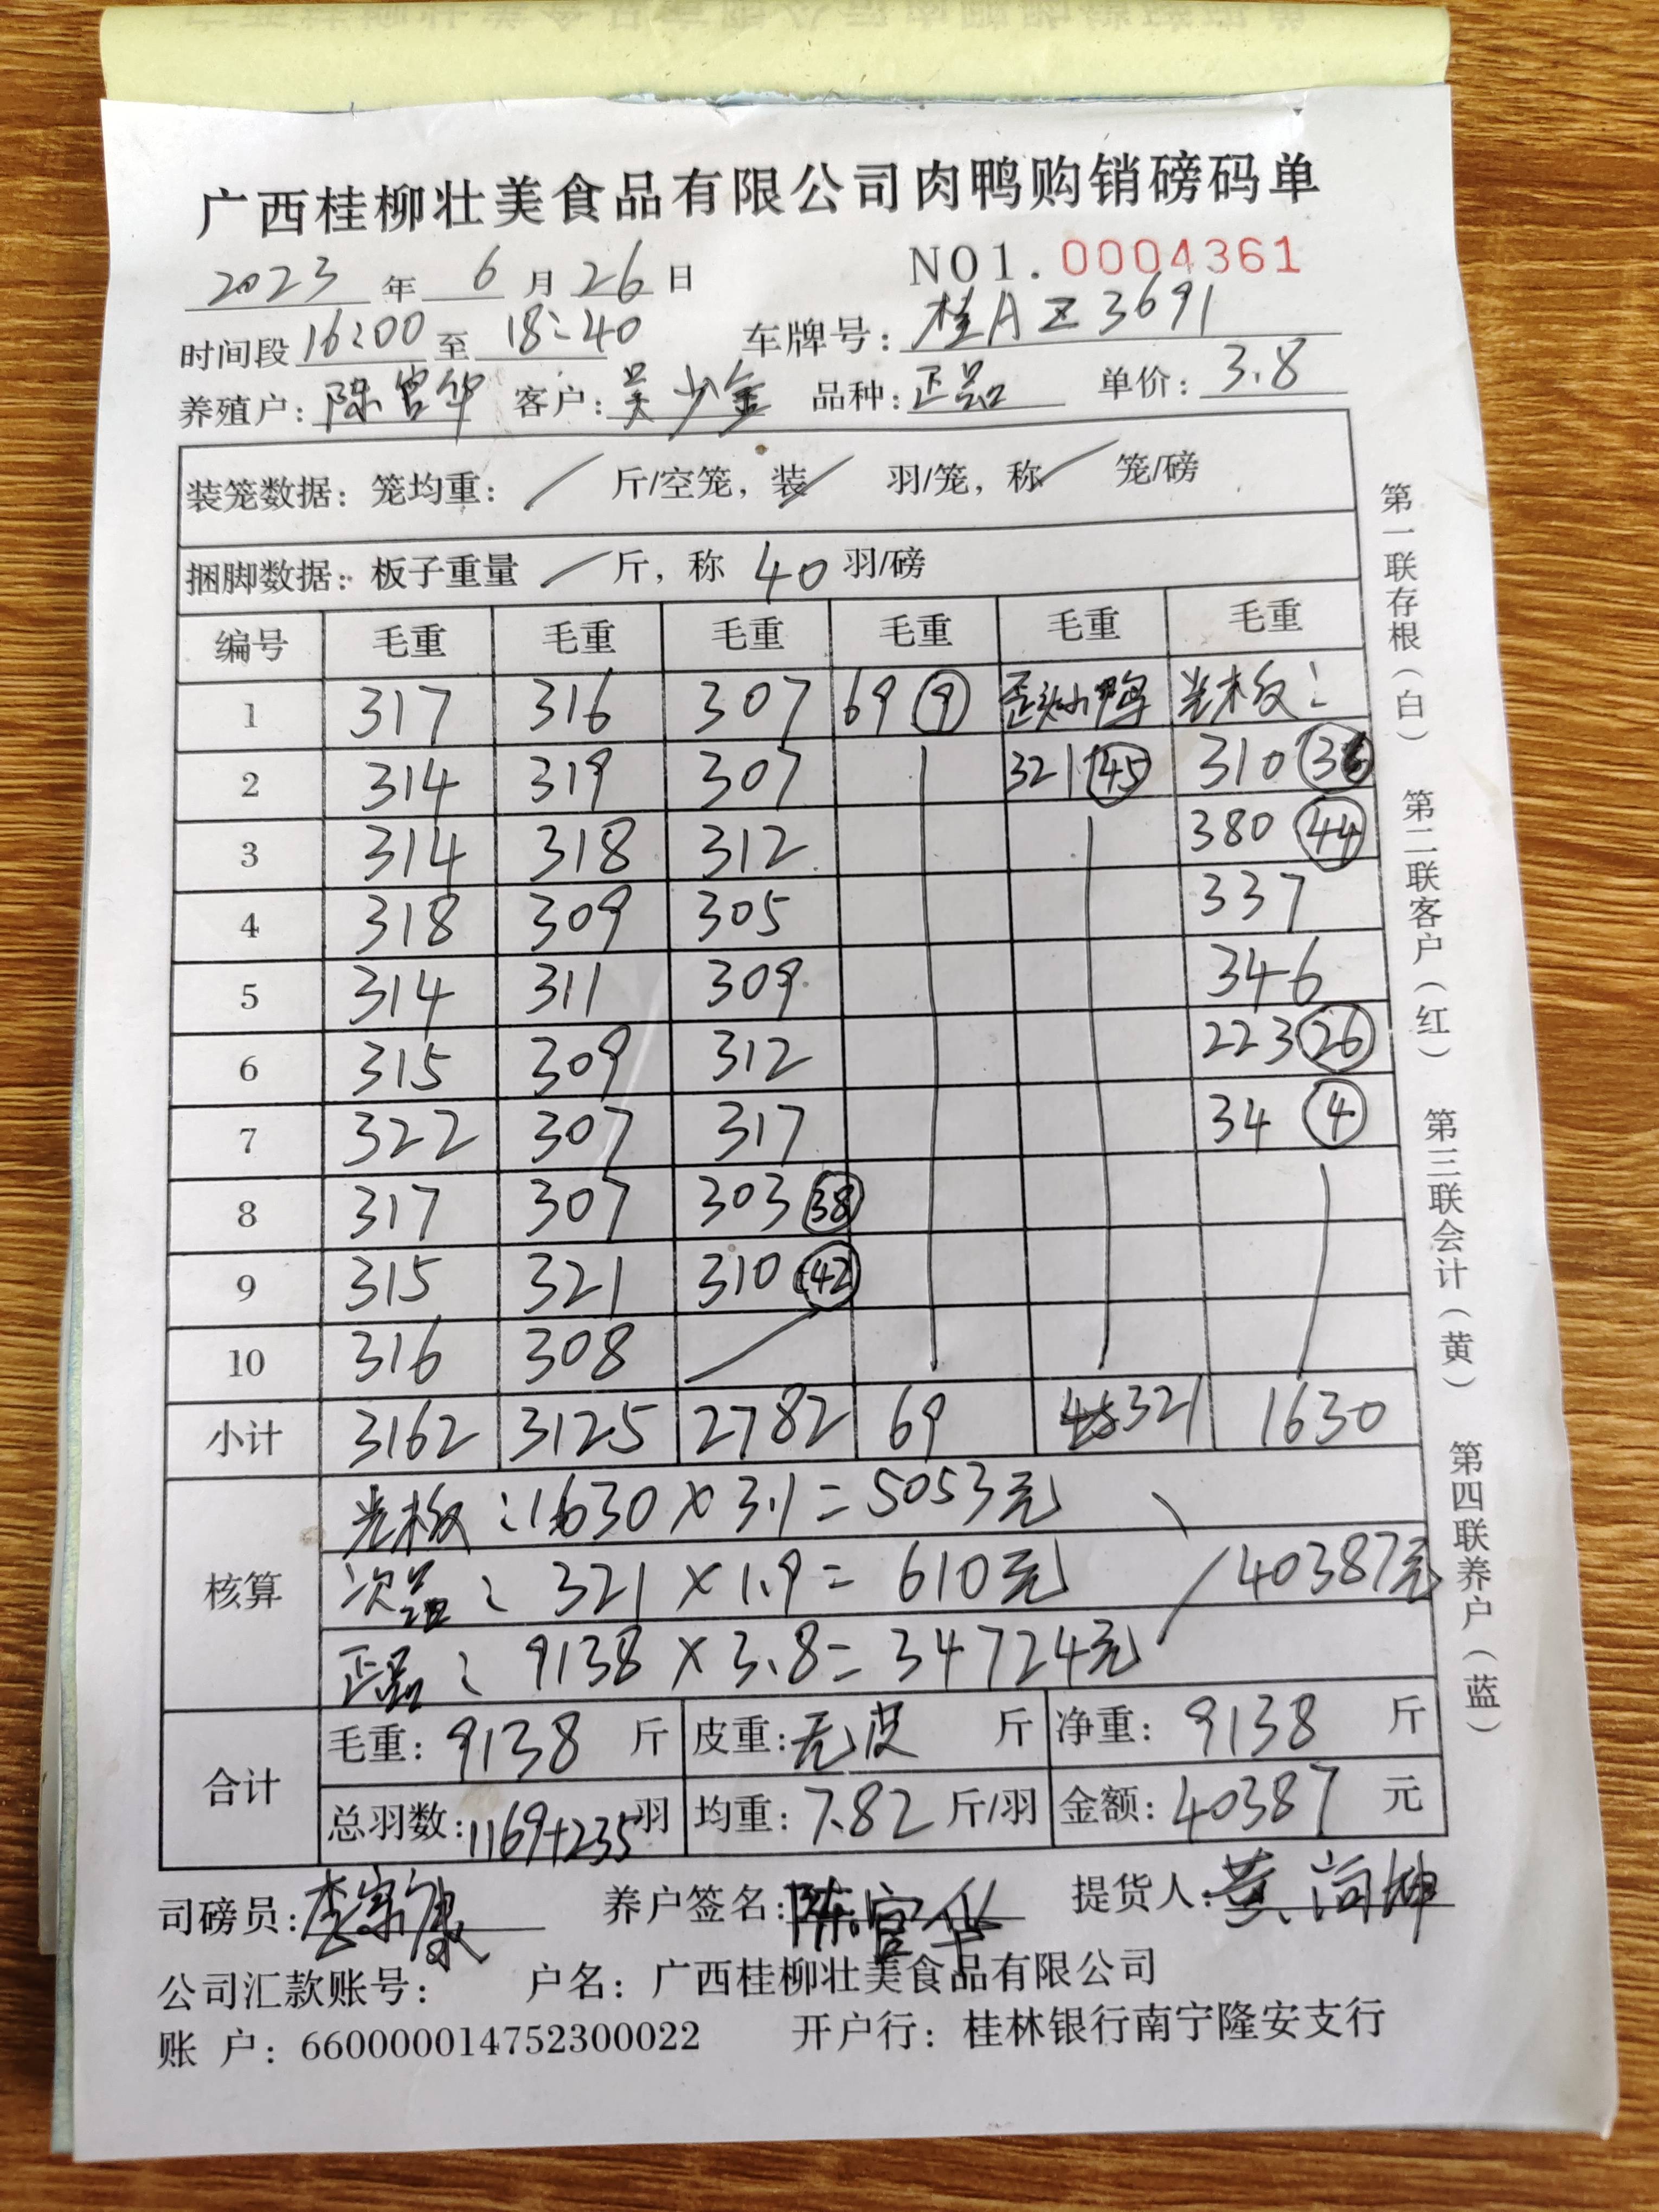 广西桂柳壮美食品有限公司肉鸭购销磅码单
2023 年 6 月 26 日 NO1. 0004361
时间段 16:00 至 18:40 车牌号: 桂AZ3691
养殖户: 陈官华 客户: 吴少金 品种: 正品 单价: 3.8
装笼数据: 笼均重: / 斤/空笼, 装 / 羽/笼, 称 / 笼/磅
捆脚数据: 板子重量 / 斤, 称 40 羽/磅
编号 毛重 毛重 毛重 毛重 毛重 毛重
1 317 316 307 69 ⑨ 歪头小鸭 光板:
2 314 319 307 321 ㊺ 310
3 314 318 312 380 ㊹
4 318 309 305 337
5 314 311 309 346
6 315 309 312 223 ㉖
7 322 307 317 34 ④
8 317 307 303 ㊳
9 315 321 310 ㊷
10 316 308 /
小计 3162 3125 2782 69 321 1630
核算
光板: 1630×3.1=5053元
次品: 321×1.9=610元 40387元
正品: 9138×3.8=34724元
合计
毛重: 9138 斤 皮重: 无皮 斤 净重: 9138 斤
总羽数: 1169+235 羽 均重: 7.82 斤/羽 金额: 40387 元
司磅员: 李家康 养户签名: 陈官华 提货人: 黄
公司汇款账号: 户名: 广西桂柳壮美食品有限公司
账 户: 660000014752300022 开户行: 桂林银行南宁隆安支行
第一联存根(白) 第二联客户(红) 第三联会计(黄) 第四联养户(蓝)